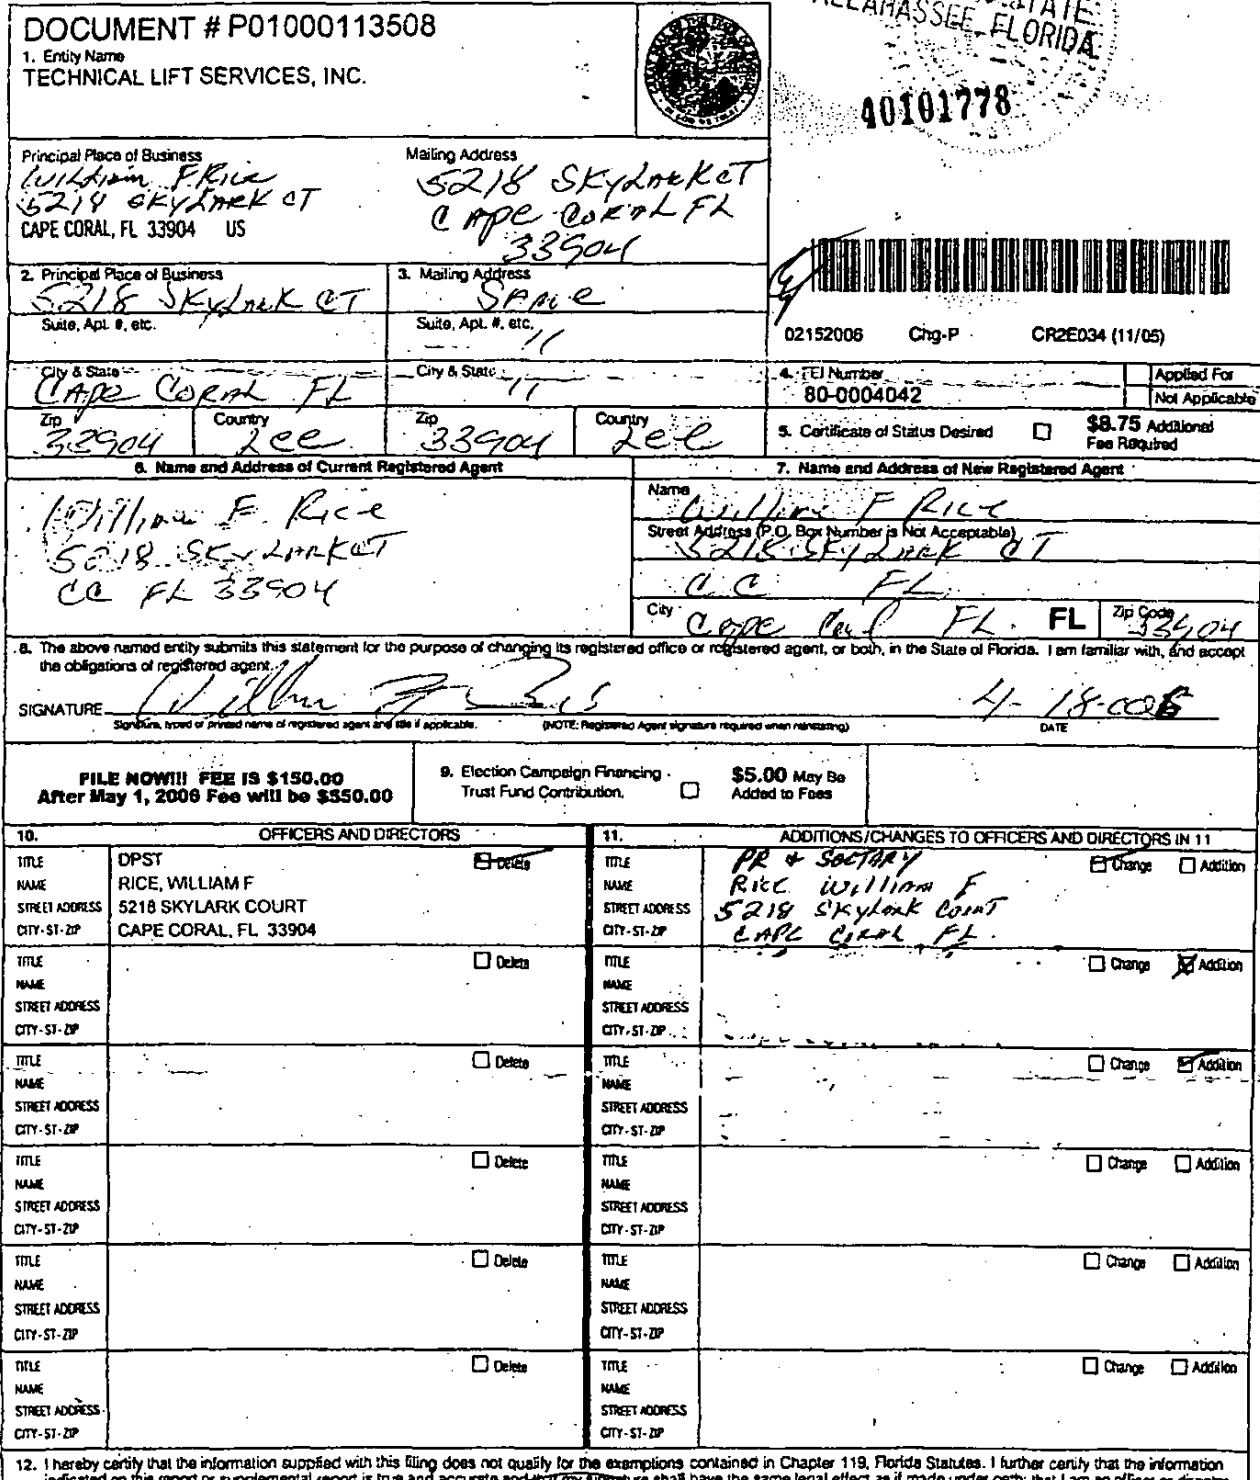 DOCUMENT # P01000113508
1. Entity Name
TECHNICAL LIFT SERVICES, INC.
TALLAHASSEE, FLORIDA
40101778
Principal Place of Business
William F. Rice
5218 SKYLARK CT
CAPE CORAL, FL 33904 US
Mailing Address
5218 SKYLARK CT
CAPE CORAL FL
33904
2. Principal Place of Business
5218 SKYLARK CT
Suite, Apt. #, etc.
3. Mailing Address
SAME
Suite, Apt. #, etc.
11
02152006 Chg-P CR2E034 (11/05)
City & State
CAPE CORAL FL
City & State
11
4. FEI Number
80-0004042
Applied For
Not Applicable
Zip
33904
Country
Lee
Zip
33904
Country
Lee
5. Certificate of Status Desired
$8.75 Additional
Fee Required
6. Name and Address of Current Registered Agent
William F. Rice
5218 SKYLARK CT
CC FL 33904
7. Name and Address of New Registered Agent
Name
William F Rice
Street Address (P.O. Box Number is Not Acceptable)
5218 SKYLARK CT
C C FL
City
Cape Coral FL. FL
Zip Code
33904
8. The above named entity submits this statement for the purpose of changing its registered office or registered agent, or both, in the State of Florida. I am familiar with, and accept
the obligations of registered agent.
SIGNATURE 4-18-006
Signature, typed or printed name of registered agent and title if applicable. (NOTE: Registered Agent signature required when reinstating) DATE
FILE NOW!!! FEE IS $150.00
After May 1, 2006 Fee will be $550.00
9. Election Campaign Financing
Trust Fund Contribution.
$5.00 May Be
Added to Fees
10. OFFICERS AND DIRECTORS
TITLE DPST Delete
NAME RICE, WILLIAM F
STREET ADDRESS 5218 SKYLARK COURT
CITY-ST-ZIP CAPE CORAL, FL 33904
TITLE Delete
NAME
STREET ADDRESS
CITY-ST-ZIP
TITLE Delete
NAME
STREET ADDRESS
CITY-ST-ZIP
TITLE Delete
NAME
STREET ADDRESS
CITY-ST-ZIP
TITLE Delete
NAME
STREET ADDRESS
CITY-ST-ZIP
TITLE Delete
NAME
STREET ADDRESS
CITY-ST-ZIP
11. ADDITIONS/CHANGES TO OFFICERS AND DIRECTORS IN 11
TITLE PR & SECTARY Change Addition
NAME RICE William F
STREET ADDRESS 5218 Skylark Court
CITY-ST-ZIP CAPE CORAL FL.
TITLE Change Addition
NAME
STREET ADDRESS
CITY-ST-ZIP
TITLE Change Addition
NAME
STREET ADDRESS
CITY-ST-ZIP
TITLE Change Addition
NAME
STREET ADDRESS
CITY-ST-ZIP
TITLE Change Addition
NAME
STREET ADDRESS
CITY-ST-ZIP
TITLE Change Addition
NAME
STREET ADDRESS
CITY-ST-ZIP
12. I hereby certify that the information supplied with this filing does not qualify for the exemptions contained in Chapter 119, Florida Statutes. I further certify that the information